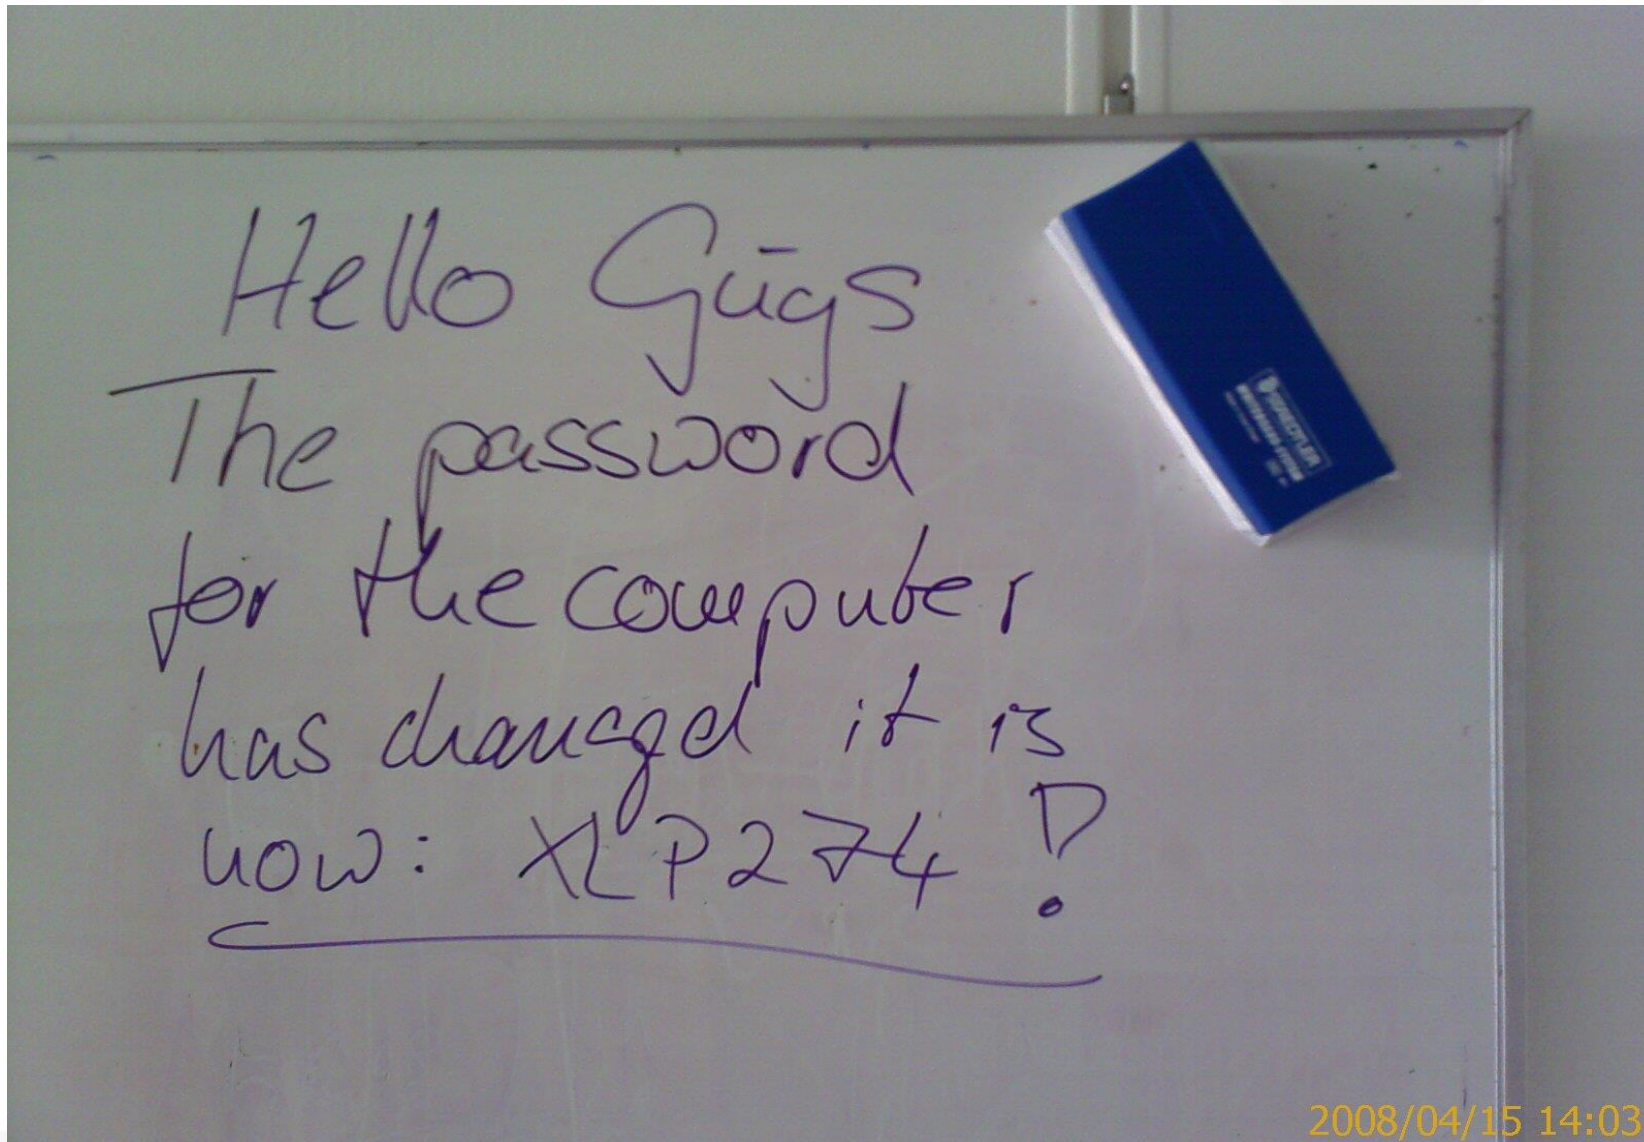 Hello Guys
The password
for the computer
has changed it is
now: XLP274!
STAEDTLER
2008/04/15 14:03